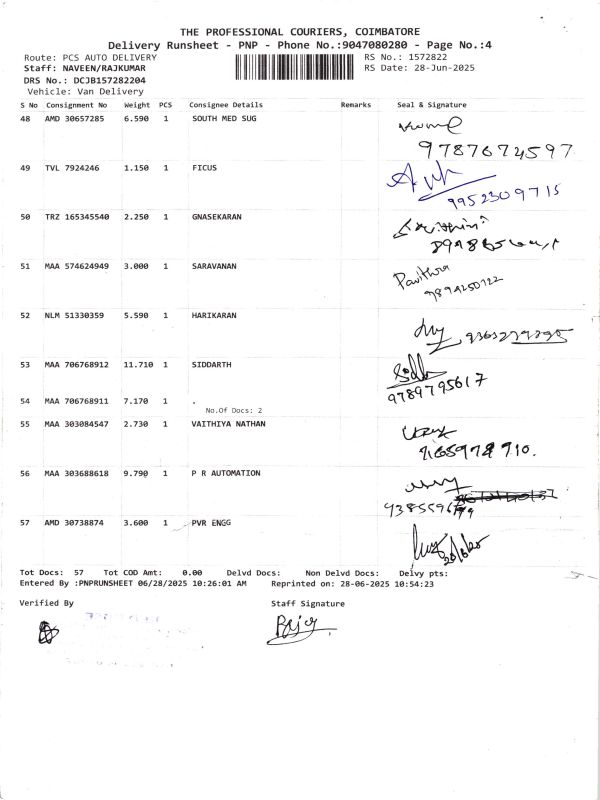 THE PROFESSIONAL COURIERS, COIMBATORE
Delivery Runsheet - PNP - Phone No.:9047080280 - Page No.:4
Route: PCS AUTO DELIVERY
RS No.: 1572822
Staff: NAVEEN/RAJKUMAR
RS Date: 28-Jun-2025
DRS No.: DCJB157282204
Vehicle: Van Delivery
S No Consignment No Weight PCS Consignee Details Remarks Seal & Signature
48 AMD 30657285 6.590 1 SOUTH MED SUG
9787672597
49 TVL 7924246 1.150 1 FICUS
9952309715
50 TRZ 165345540 2.250 1 GNASEKARAN
51 MAA 574624949 3.000 1 SARAVANAN
Pavithra
9894250122
52 NLM 51330359 5.590 1 HARIKARAN
53 MAA 706768912 11.710 1 SIDDARTH
9789795617
54 MAA 706768911 7.170 1 .
No.Of Docs: 2
55 MAA 303084547 2.730 1 VAITHIYA NATHAN
56 MAA 303688618 9.790 1 P R AUTOMATION
57 AMD 30738874 3.600 1 PVR ENGG
28/6/25
Tot Docs: 57 Tot COD Amt: 0.00 Delvd Docs: Non Delvd Docs: Delvy pts:
Entered By :PNPRUNSHEET 06/28/2025 10:26:01 AM Reprinted on: 28-06-2025 10:54:23
Verified By
Staff Signature